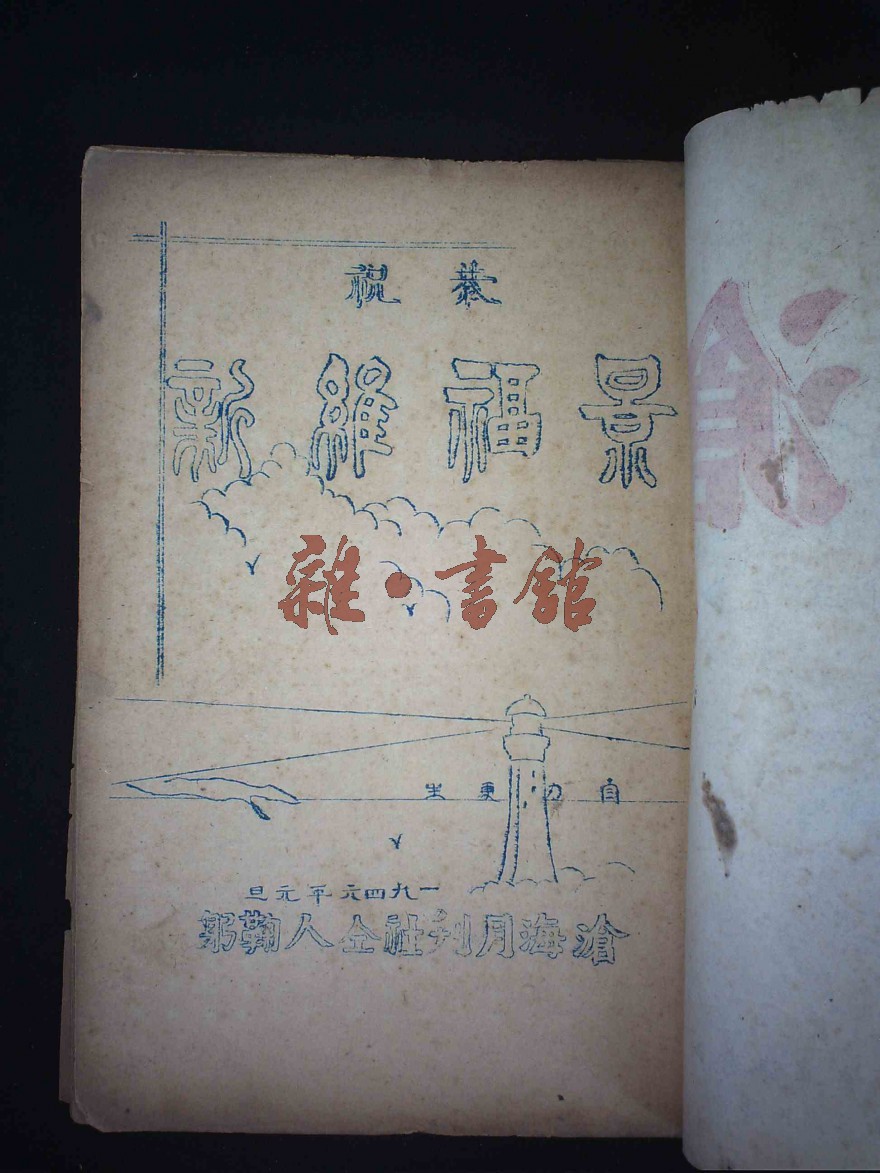 恭祝
景福維新
雜·書館
自力更生
一九四六年元旦
滄海月刊社仝人鞠躬
滄